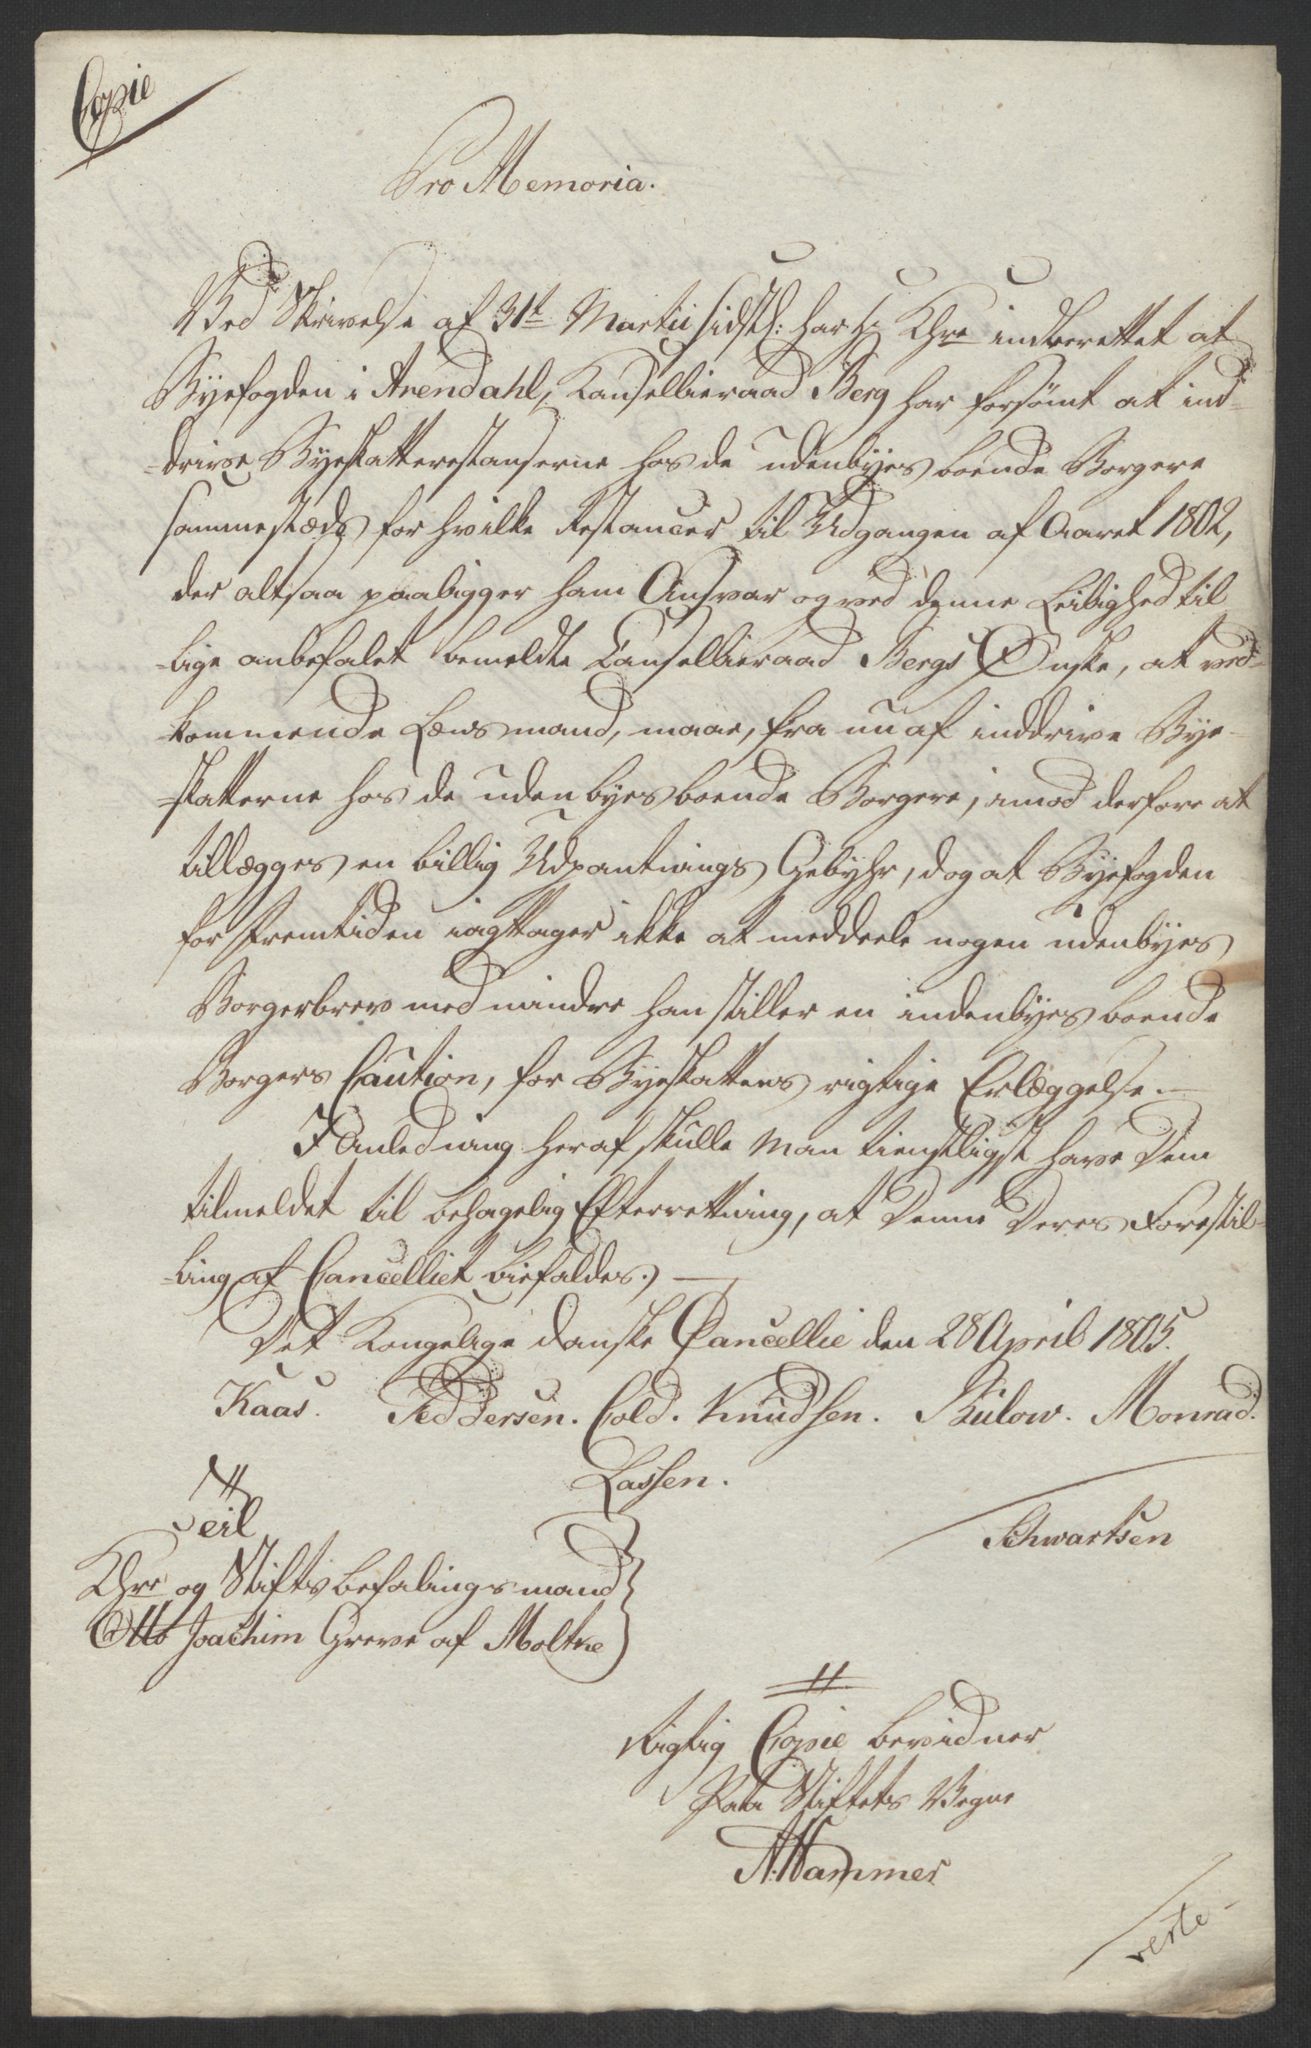 Copie
Pro Memoria.
Ved Skrivelse af 31t Martii sidstl: har Hr Khre indberettet at
Byefogden i Arendahl, Kansellieraad Berg har forsømt at ind-
-drive Byeskatterestanserne hos de udenbyes boende Borgere
sammestæds for hvilke Restancer til Udgangen af Aaret 1802,
der altsaa paaligger ham Ansvar og ved denne Leilighed til
-lige anbefalet bemeldte Cansellieraad Bergs Ønske, at ved-
-kommende Lænsmand, maae, fra nu af inddrive Bye-
-skatterne hos de udenbyes boende Borgere, imod derfore at
tillægges en billig Udpantnings Gebyhr, dog at Byefogden
for Fremtiden iagttager ikke at meddeele nogen udenbyes
Borgerbrev med mindre han stiller en indenbyes boende
Borgers Caution, for Byeskattens rigtige Erlæggelse.
I Anledning heraf skulle man tienstligst have Dem
tilmeldet til behagelig Efterrettning, at Denne Deres Forestil-
-ling af Cancelliet biefaldes.
Det Kongelige danske Cancellie den 28 April 1805.
Kaas. Feddersen. Cold. Knudsen. Bülow. Monrad.
Lassen.
Schwartsen
Teil
Khre og Stiftsbefalingsmand
Otto Joachim Greve af Moltke
Rigtig Copie bevidner
Paa Stiftets Vegne
N. Hammer
verte